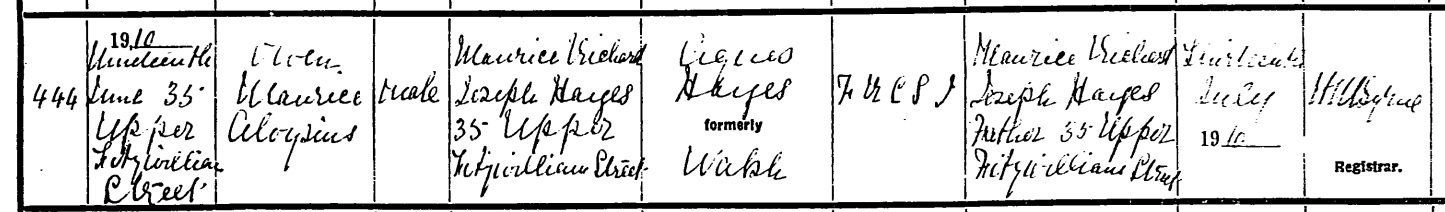 444
1910
Nineteenth
June 35
Upper
Fitzwilliam
Street
Owen
Maurice
Aloysius
Male
Maurice Richard
Joseph Hayes
35 Upper
Fitzwilliam Street
Agnes
Hayes
formerly
Walsh
F R C S I
Maurice Richard
Joseph Hayes
Father 35 Upper
Fitzwilliam Street
Thirteenth
July
1910
Byrne
Registrar.